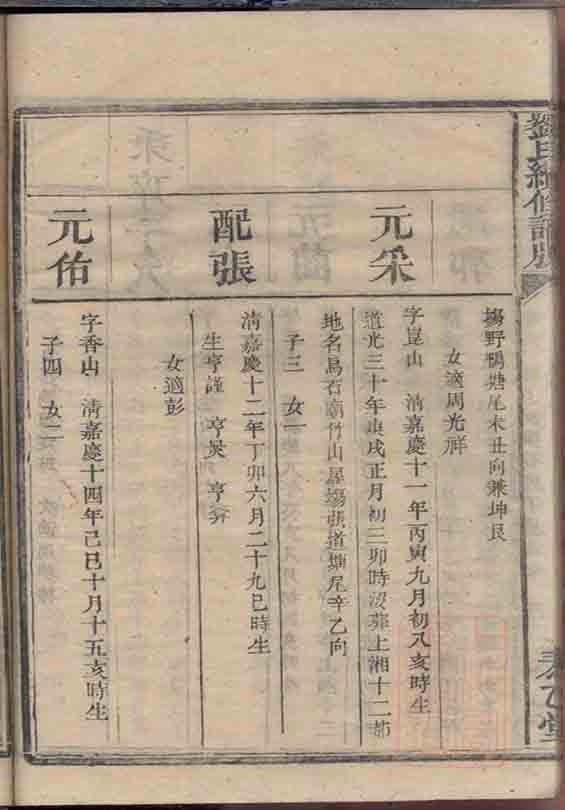 劉氏續修譜
塲野鴨塘尾未丑向兼坤艮
女適周光祥
元采
字崑山　清嘉慶十一年丙寅九月初八亥時生
道光三十年庚戌正月初三卯時沒葬上湘十二都
地名烏石廟竹山塲張道塘尾辛乙向
子三　女一
配張
清嘉慶十二年丁卯六月二十九巳時生
生亨謹　亨炭　亨
女適彭
元佑
字香山　清嘉慶十四年己巳十月十五亥時生
子四　女二
乙堂